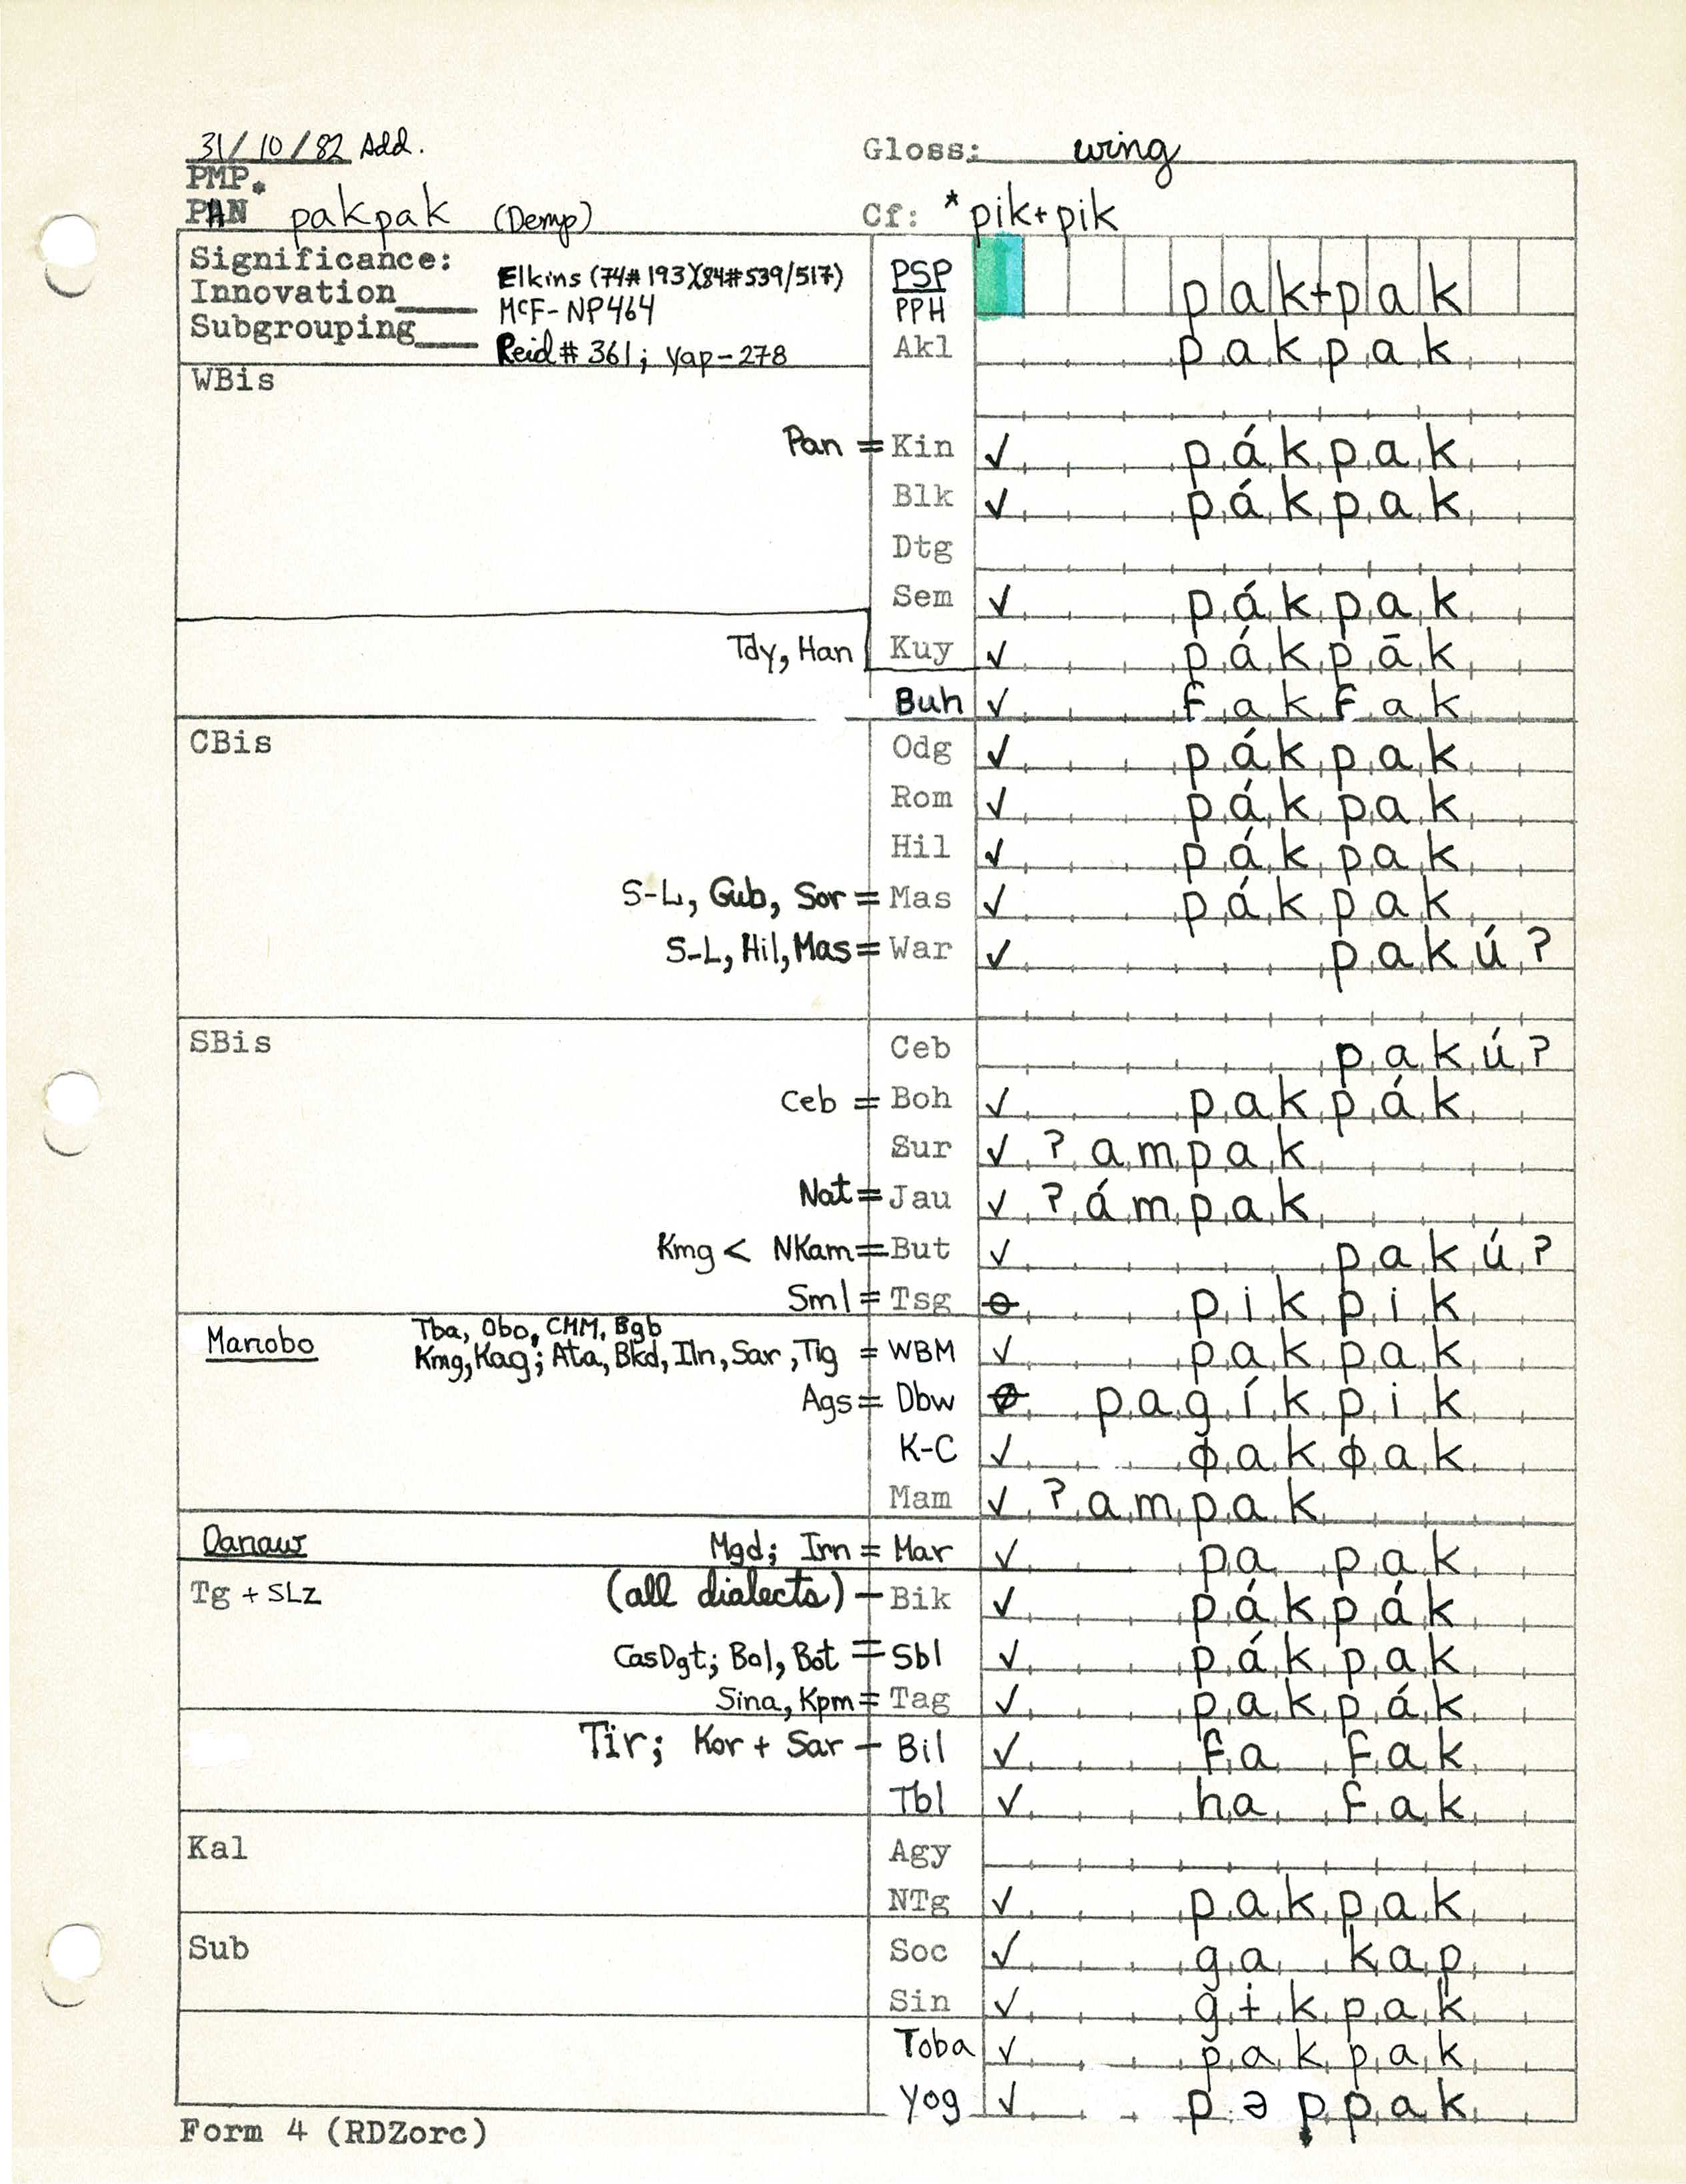 31/10/82 Add. Gloss: wing
PMP*
PAN pakpak (Demp) Cf: *pik+pik
Significance: Elkins (74#193)(84#539/517) PSP
Innovation McF-NP464 PPH pak+pak
Subgrouping Reid#361; Yap-278 Akl pakpak
WBis
Pan = Kin ✓ pákpak
Blk ✓ pákpak
Dtg
Sem ✓ pákpak
Tdy, Han Kuy ✓ pákpāk
Buh ✓ fakfak
CBis Odg ✓ pákpak
Rom ✓ pákpak
Hil ✓ pákpak
S-L, Gub, Sor = Mas ✓ pákpak
S-L, Hil, Mas = War ✓ pakúʔ
SBis Ceb pakúʔ
Ceb = Boh ✓ pakpák
Sur ✓ ʔampak
Nat = Jau ✓ ʔámpak
Kmg < NKam = But ✓ pakúʔ
Sml = Tsg pikpik
Manobo Tba, Obo, CMM, Bgb
Kmg, Kag; Ata, Bkd, Iln, Sar, Tig = WBM ✓ pakpak
Ags = Dbw pagíkpik
K-C ✓ ɸakɸak
Mam ✓ ʔampak
Danaw Mgd; Irn = Mar ✓ pa pak
Tg + SLZ (all dialects) - Bik ✓ pákpák
CasDgt; Bol, Bot = Sbl ✓ pákpak
Sina, Kpm = Tag ✓ pakpák
Tir; Kor + Sar - Bil ✓ fa fak
Tbl ✓ ha fak
Kal Agy
NTg ✓ pakpak
Sub Soc ✓ ga kap
Sin ✓ gɨkpak
Toba ✓ pakpak
Yog ✓ pəppak
Form 4 (RDZorc)